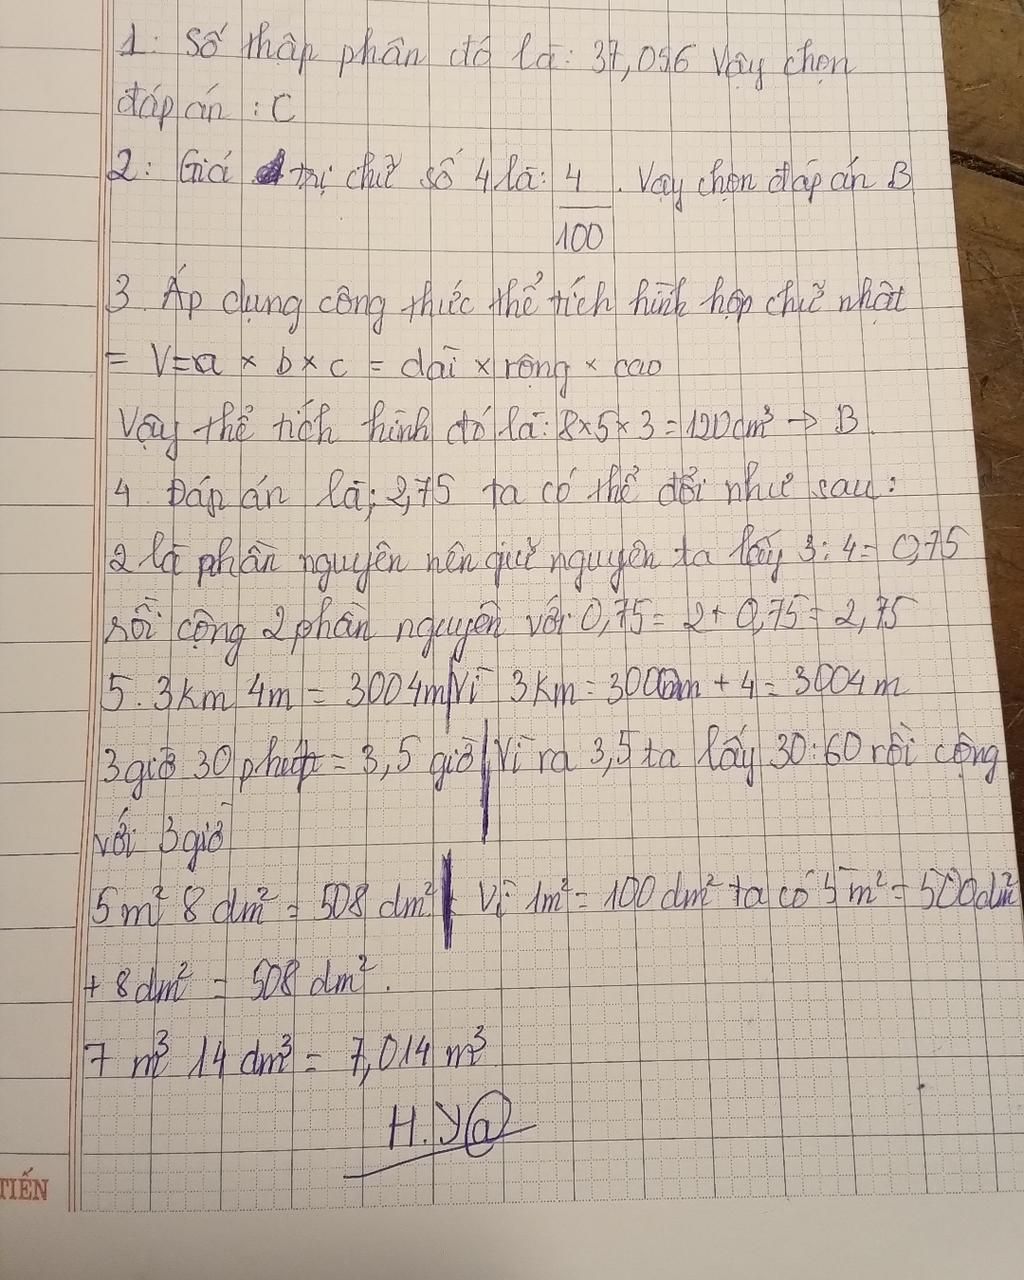 1: Số thập phân đó là: 37,056 Vậy chọn
đáp án : C
2: Giá trị chữ số 4 là: 4/100. Vậy chọn đáp án B
3. Áp dụng công thức thể tích hình hộp chữ nhật
= V=a × b × c = dài × rộng × cao
Vậy thể tích hình đó là: 8×5×3=120cm³ → B
4. Đáp án là; 2,75 ta có thể đổi như sau:
2 là phần nguyên nên giữ nguyên ta lấy 3:4= 0,75
rồi cộng 2 phần nguyên với 0,75= 2+ 0,75= 2,75
5. 3km 4m = 3004m|Vì 3km = 3000m + 4 = 3004m
3 giờ 30 phút = 3,5 giờ|Vì ra 3,5 ta lấy 30:60 rồi cộng
với 3 giờ
5m² 8 dm² = 508 dm²| Vì 1m² = 100 dm² ta có 5m² = 500dm²
+ 8dm² = 508 dm².
7 m³ 14 dm³ = 7,014 m³
H.Ya
TIẾN